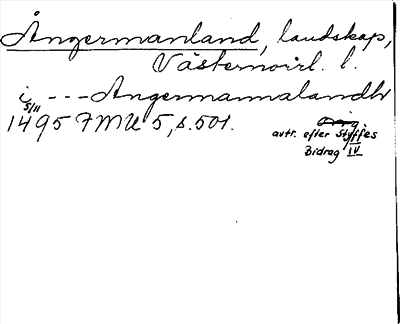 Ångermanland, landskap,
Västernorrl. l.
i --- Angermannalandh
5/11
1495 FMU 5, s. 501.
Orig.
avtr. efter Styffes
Bidrag IV